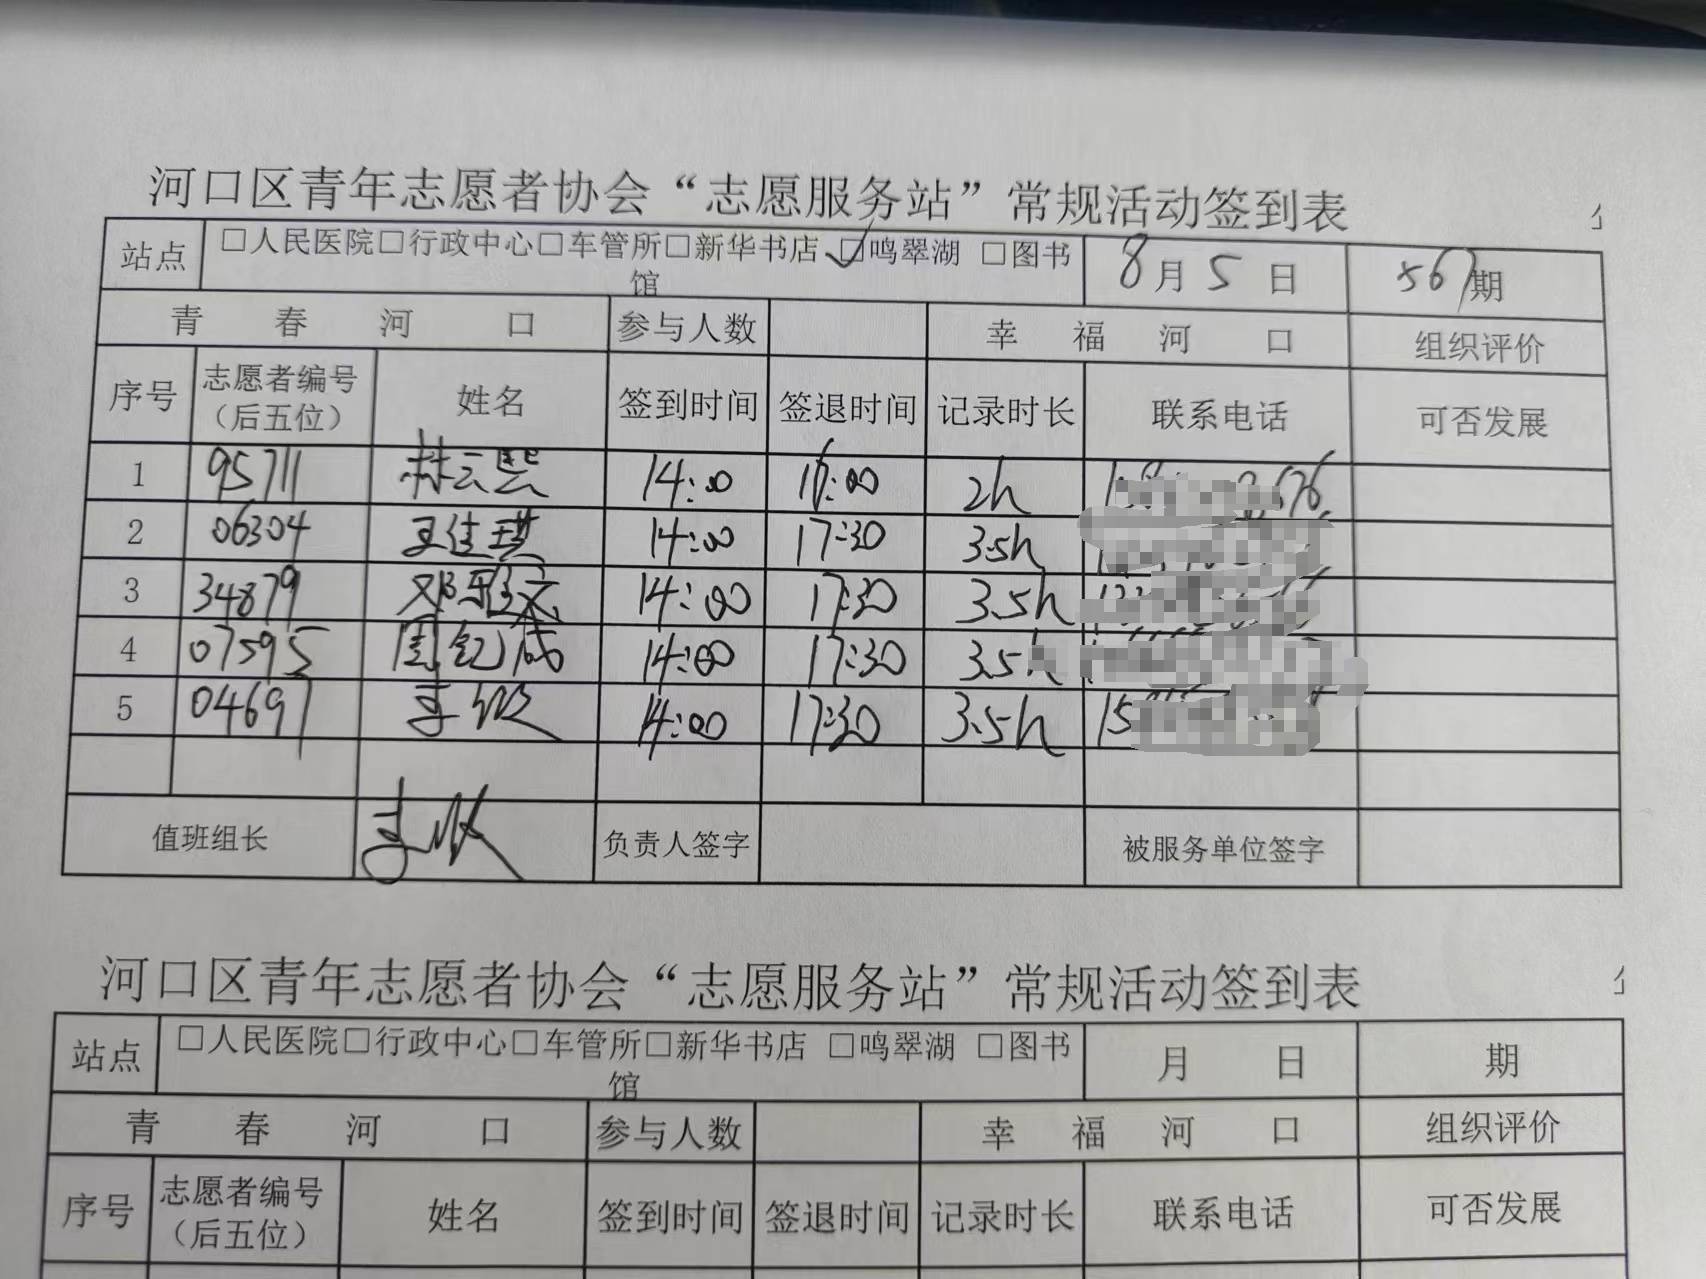 河口区青年志愿者协会“志愿服务站”常规活动签到表
站点 □人民医院□行政中心□车管所□新华书店 ☑鸣翠湖 □图书馆 8月5日 567期
青春河口 参与人数 幸福河口 组织评价
序号 志愿者编号（后五位） 姓名 签到时间 签退时间 记录时长 联系电话 可否发展
1 95711 林云熙 14:00 16:00 2h
2 06304 王佳琪 14:00 17:30 3.5h
3 34879 14:00 17:30 3.5h
4 07595 周纪成 14:00 17:30 3.5h
5 04697 李敏 14:00 17:30 3.5h 15
值班组长 李敏 负责人签字 被服务单位签字
河口区青年志愿者协会“志愿服务站”常规活动签到表
站点 □人民医院□行政中心□车管所□新华书店 □鸣翠湖 □图书馆 月 日 期
青春河口 参与人数 幸福河口 组织评价
序号 志愿者编号（后五位） 姓名 签到时间 签退时间 记录时长 联系电话 可否发展